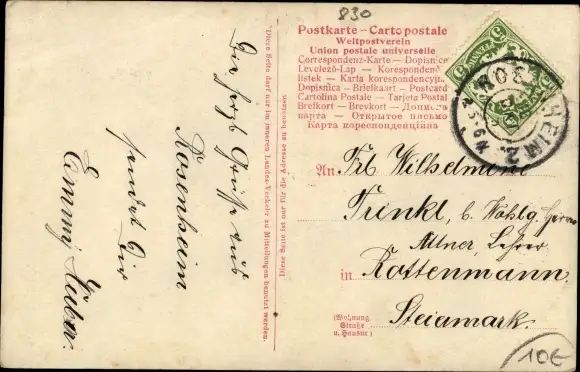 830
Postkarte - Carto postale
Weltpostverein
Union postale universelle
Correspondenz-Karte - Dopisnice
Levelező-Lap - Korespond
listek - Karta korespondencyjna
Dopisnica - Briefkaart - Postcard
Cartolina Postale - Tarjeta Postal
Brefkort - Brevkort - Дописна
карта - Открытое письмо
Карта кореспонденційна
5
HEIM 2.
An Frl. Wilhelmine
Trinkl, b. Wohlg. Herrn
Lehrer
in Rottenmann
Steiamark.
(Wohnung
Straße
u. Hausnr.)
*Diese Seite darf nur im inneren Landes-Verkehr zu Mitteilungen benutzt werden.
Diese Seite ist nur für die Adresse zu benützen
Die herzl Grüße aus
Rosenheim
sendet Dir
Emmy Huber.
10€